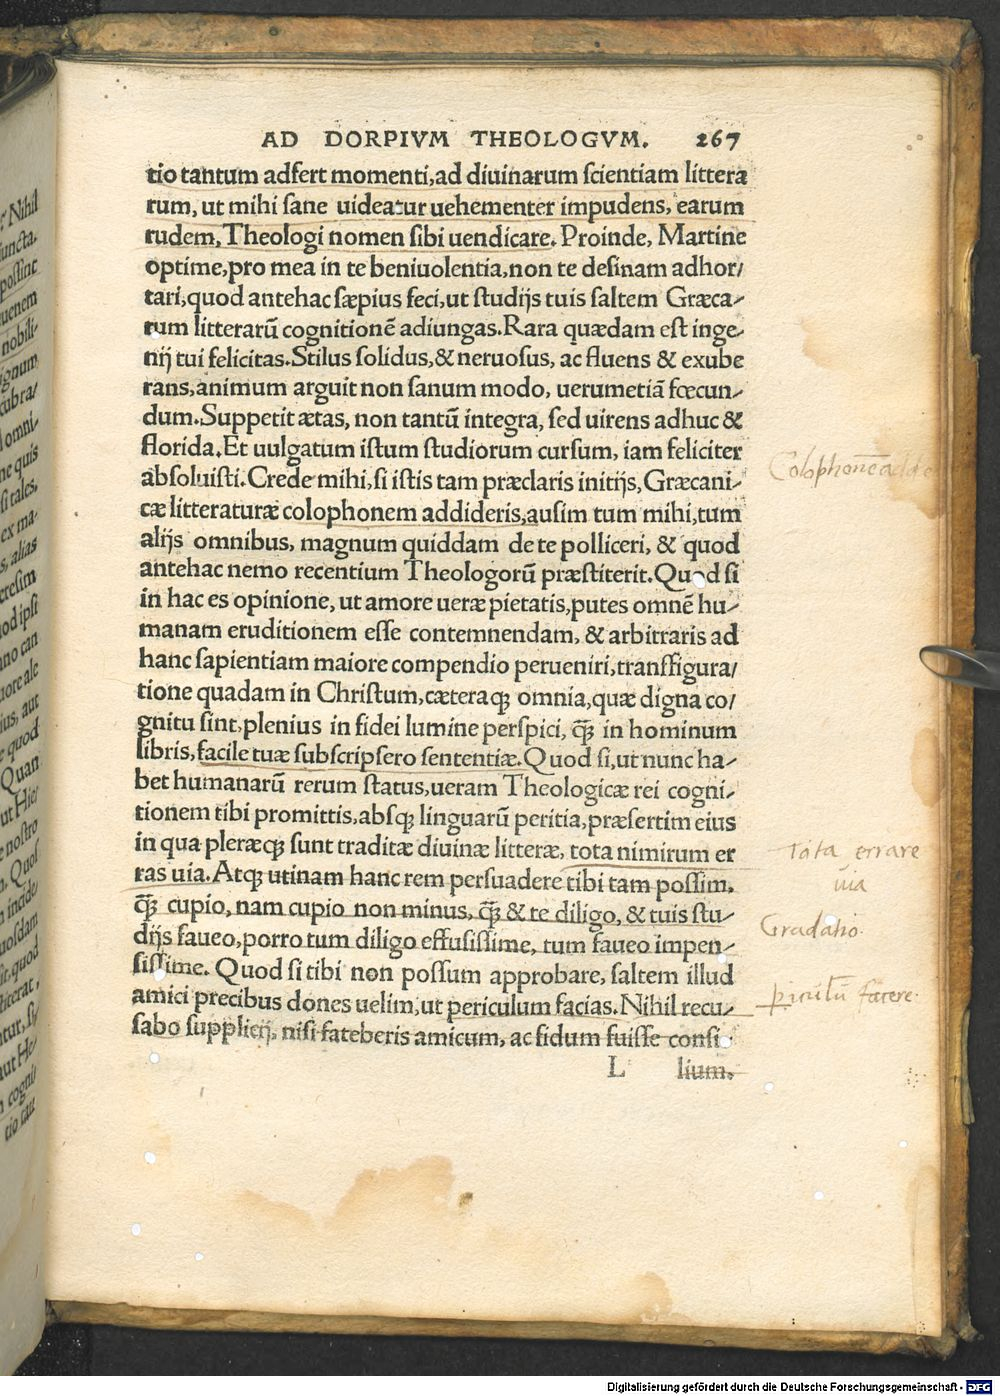 AD DORPIVM THEOLOGVM. 267
tio tantum adfert momenti,ad diuinarum ſcientiam littera
rum, ut mihi ſane uideatur uehementer impudens, earum
rudem, Theologi nomen ſibi uendicare. Proinde, Martine
optime,pro mea in te beniuolentia,non te deſinam adhor/
tari,quod antehac ſæpius feci,ut ſtudijs tuis ſaltem Græca/
rum litterarū cognitionē adiungas.Rara quædam eſt inge/
nij tui felicitas.Stilus ſolidus,& neruoſus, ac fluens & exube
rans,animum arguit non ſanum modo, uerumetiā fœcun/
dum.Suppetit ætas, non tantū integra, ſed uirens adhuc &
florida.Et uulgatum iſtum ſtudiorum curſum, iam feliciter
abſoluiſti.Crede mihi,ſi iſtis tam præclaris initijs,Græcani/
cæ litteraturæ colophonem addideris,auſim tum mihi,tum
alijs omnibus, magnum quiddam de te polliceri, & quod
antehac nemo recentium Theologorū præſtiterit.Quod ſi
in hac es opinione, ut amore ueræ pietatis,putes omnē hu/
manam eruditionem eſſe contemnendam, & arbitraris ad
hanc ſapientiam maiore compendio perueniri,transfigura/
tione quadam in Chriſtum,cæteraꝗ omnia,quæ digna co/
gnitu ſint,plenius in fidei lumine perſpici, ꝗ̃ in hominum
libris,facile tuæ ſubſcripſero ſententiæ.Quod ſi,ut nunc ha/
bet humanarū rerum ſtatus,ueram Theologicæ rei cogni/
tionem tibi promittis,abſꝗ linguarū peritia,præſertim eius
in qua pleræꝗ ſunt traditæ diuinæ litteræ, tota nimirum er
ras uia. Atꝗ utinam hanc rem perſuadere tibi tam poſſim,
ꝗ̃ cupio, nam cupio non minus, ꝗ̃ & te diligo, & tuis ſtu/
dijs faueo,porro tum diligo effuſiſſime, tum faueo impen/
ſiſſime. Quod ſi tibi non poſſum approbare, ſaltem illud
amici precibus dones uelim,ut periculum facias. Nihil recu/
ſabo ſupplicij, niſi fateberis amicum, ac fidum fuiſſe conſi
L lium.
Colophonē adde
Tota errare
uia
Gradatio.
ꝑiculū facere.
Digitalisierung gefördert durch die Deutsche Forschungsgemeinschaft - DFG